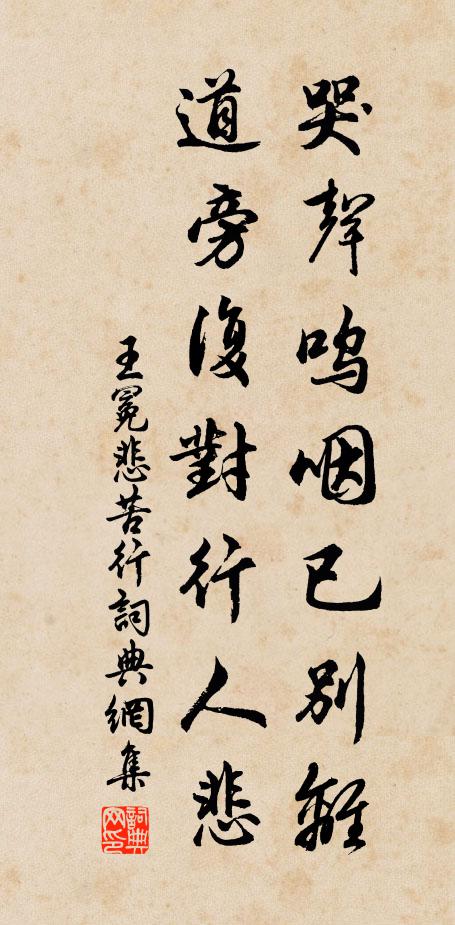 哭聲嗚咽已別離
道旁復對行人悲
王冕悲苦行詞典網集
詞典网印